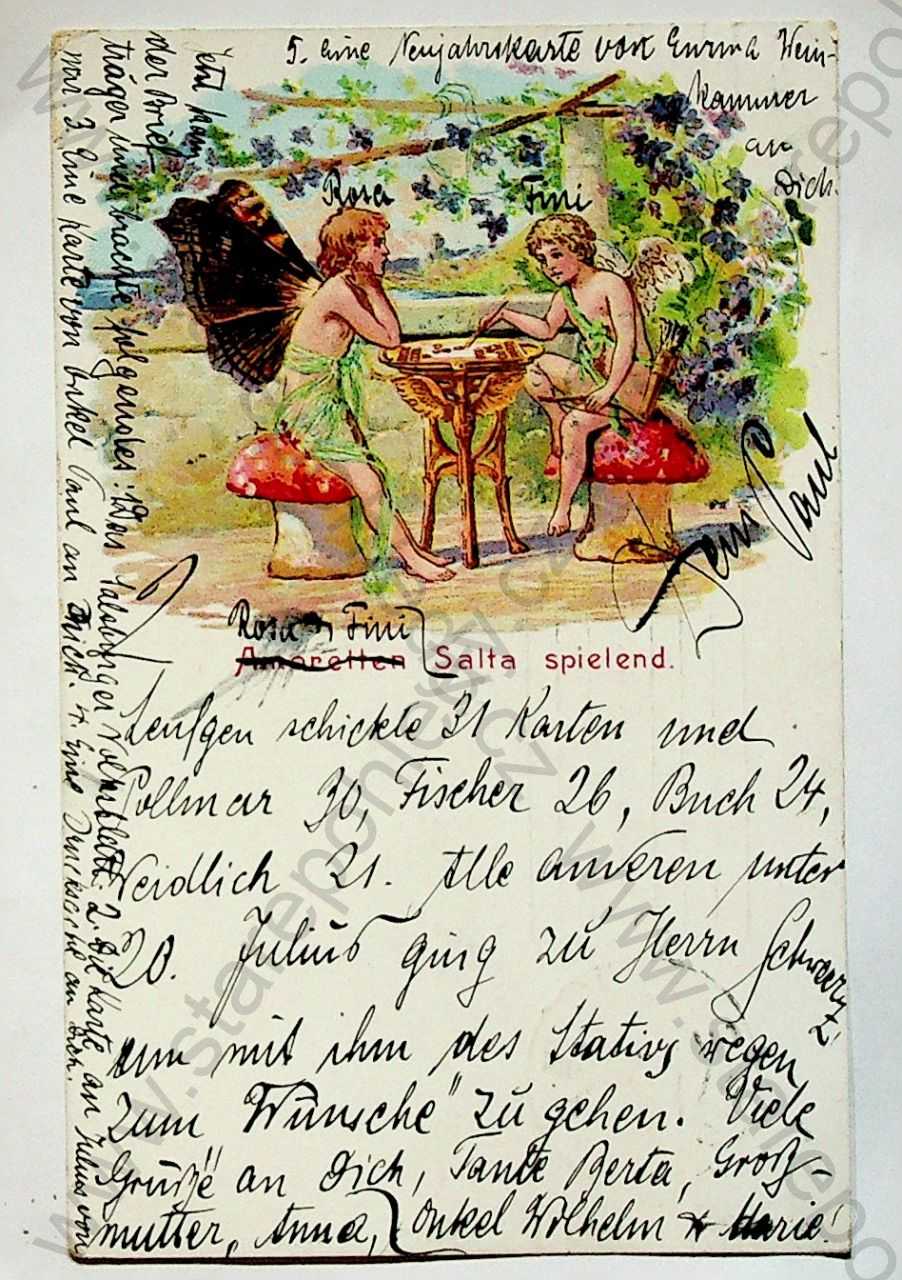 5. eine Neujahrskarte von Emma Wein-
kammer
an
Dich.
Rosa Fini
Dein Paul
Rosa & Fini
Amoretten Salta spielend.
schickte 31 Karten und
Pollmar 30, Fischer 26, Buch 24,
Weidlich 21. Alle anderen unter
20. Julius ging zu Herrn Schwarz,
um mit ihm des Stativs wegen
zum "Wünsche" zu gehen. Viele
Grüße an Dich, Tante Berta, Groß-
mutter, Anna, Onkel Wilhelm & Marie!
Jetzt kam
der Brief-
träger und brachte folgendes: Das Salzburger Volksblatt. 2. die Karte an Julius von
mir. 3. Eine Karte von Onkel Paul an Dich. 4. Eine an Dich.
www.stareponledy.cz